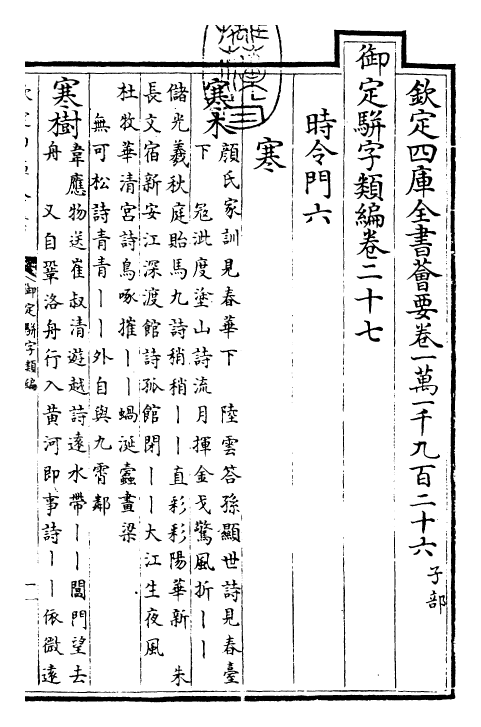 欽定四庫全書薈要卷一萬一千九百二十六 子部
御定駢字類編卷二十七
時令門六
寒
寒木 顔氏家訓見春華下 陸雲答孫顯世詩見春臺
下 寇泚度塗山詩流月揮金戈驚風折丨丨
儲光羲秋庭貽馬九詩稍稍丨丨直彩彩陽華新 朱
長文宿新安江深渡館詩孤館閉丨丨大江生夜風
杜牧華清宮詩鳥啄摧丨丨蝸涎蠧畫梁
無可松詩青青丨丨外自與九霄鄰
寒樹 韋應物送崔叔清遊越詩逺水帶丨丨閶門望去
舟 又自鞏洛舟行入黃河即事詩丨丨依微逺
御定駢字類編
一